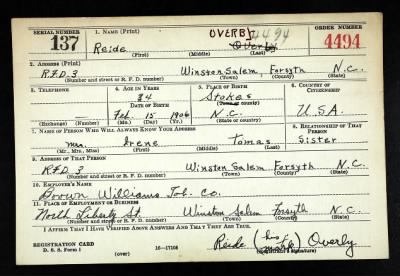 SERIAL NUMBER 1. NAME (Print) OVERBY 4494 ORDER NUMBER
137 Reide Overby 4494
(First) (Middle) (Last)
2. ADDRESS (Print)
R.F.D. 3 Winston Salem, Forsyth N.C.
(Number and street or R. F. D. number) (Town) (County) (State)
3. TELEPHONE 4. AGE IN YEARS 5. PLACE OF BIRTH 6. COUNTRY OF CITIZENSHIP
34 Stokes
DATE OF BIRTH (Town or county)
Feb. 15 1906 N.C. U.S.A.
(Exchange) (Number) (Mo.) (Day) (Yr.) (State or country)
7. NAME OF PERSON WHO WILL ALWAYS KNOW YOUR ADDRESS 8. RELATIONSHIP OF THAT PERSON
Mrs. Irene Tomas Sister
(Mr., Mrs., Miss) (First) (Middle) (Last)
9. ADDRESS OF THAT PERSON
R.F.D. 3 Winston Salem Forsyth N.C.
(Number and street or R. F. D. number) (Town) (County) (State)
10. EMPLOYER'S NAME
Brown Williams Tob. Co.
11. PLACE OF EMPLOYMENT OR BUSINESS
North Liberty St. Winston Salem Forsyth N.C.
(Number and street or R. F. D. number) (Town) (County) (State)
I AFFIRM THAT I HAVE VERIFIED ABOVE ANSWERS AND THAT THEY ARE TRUE.
REGISTRATION CARD
D. S. S. Form 1 16—17105 Reide (his mark) Overly
(over)